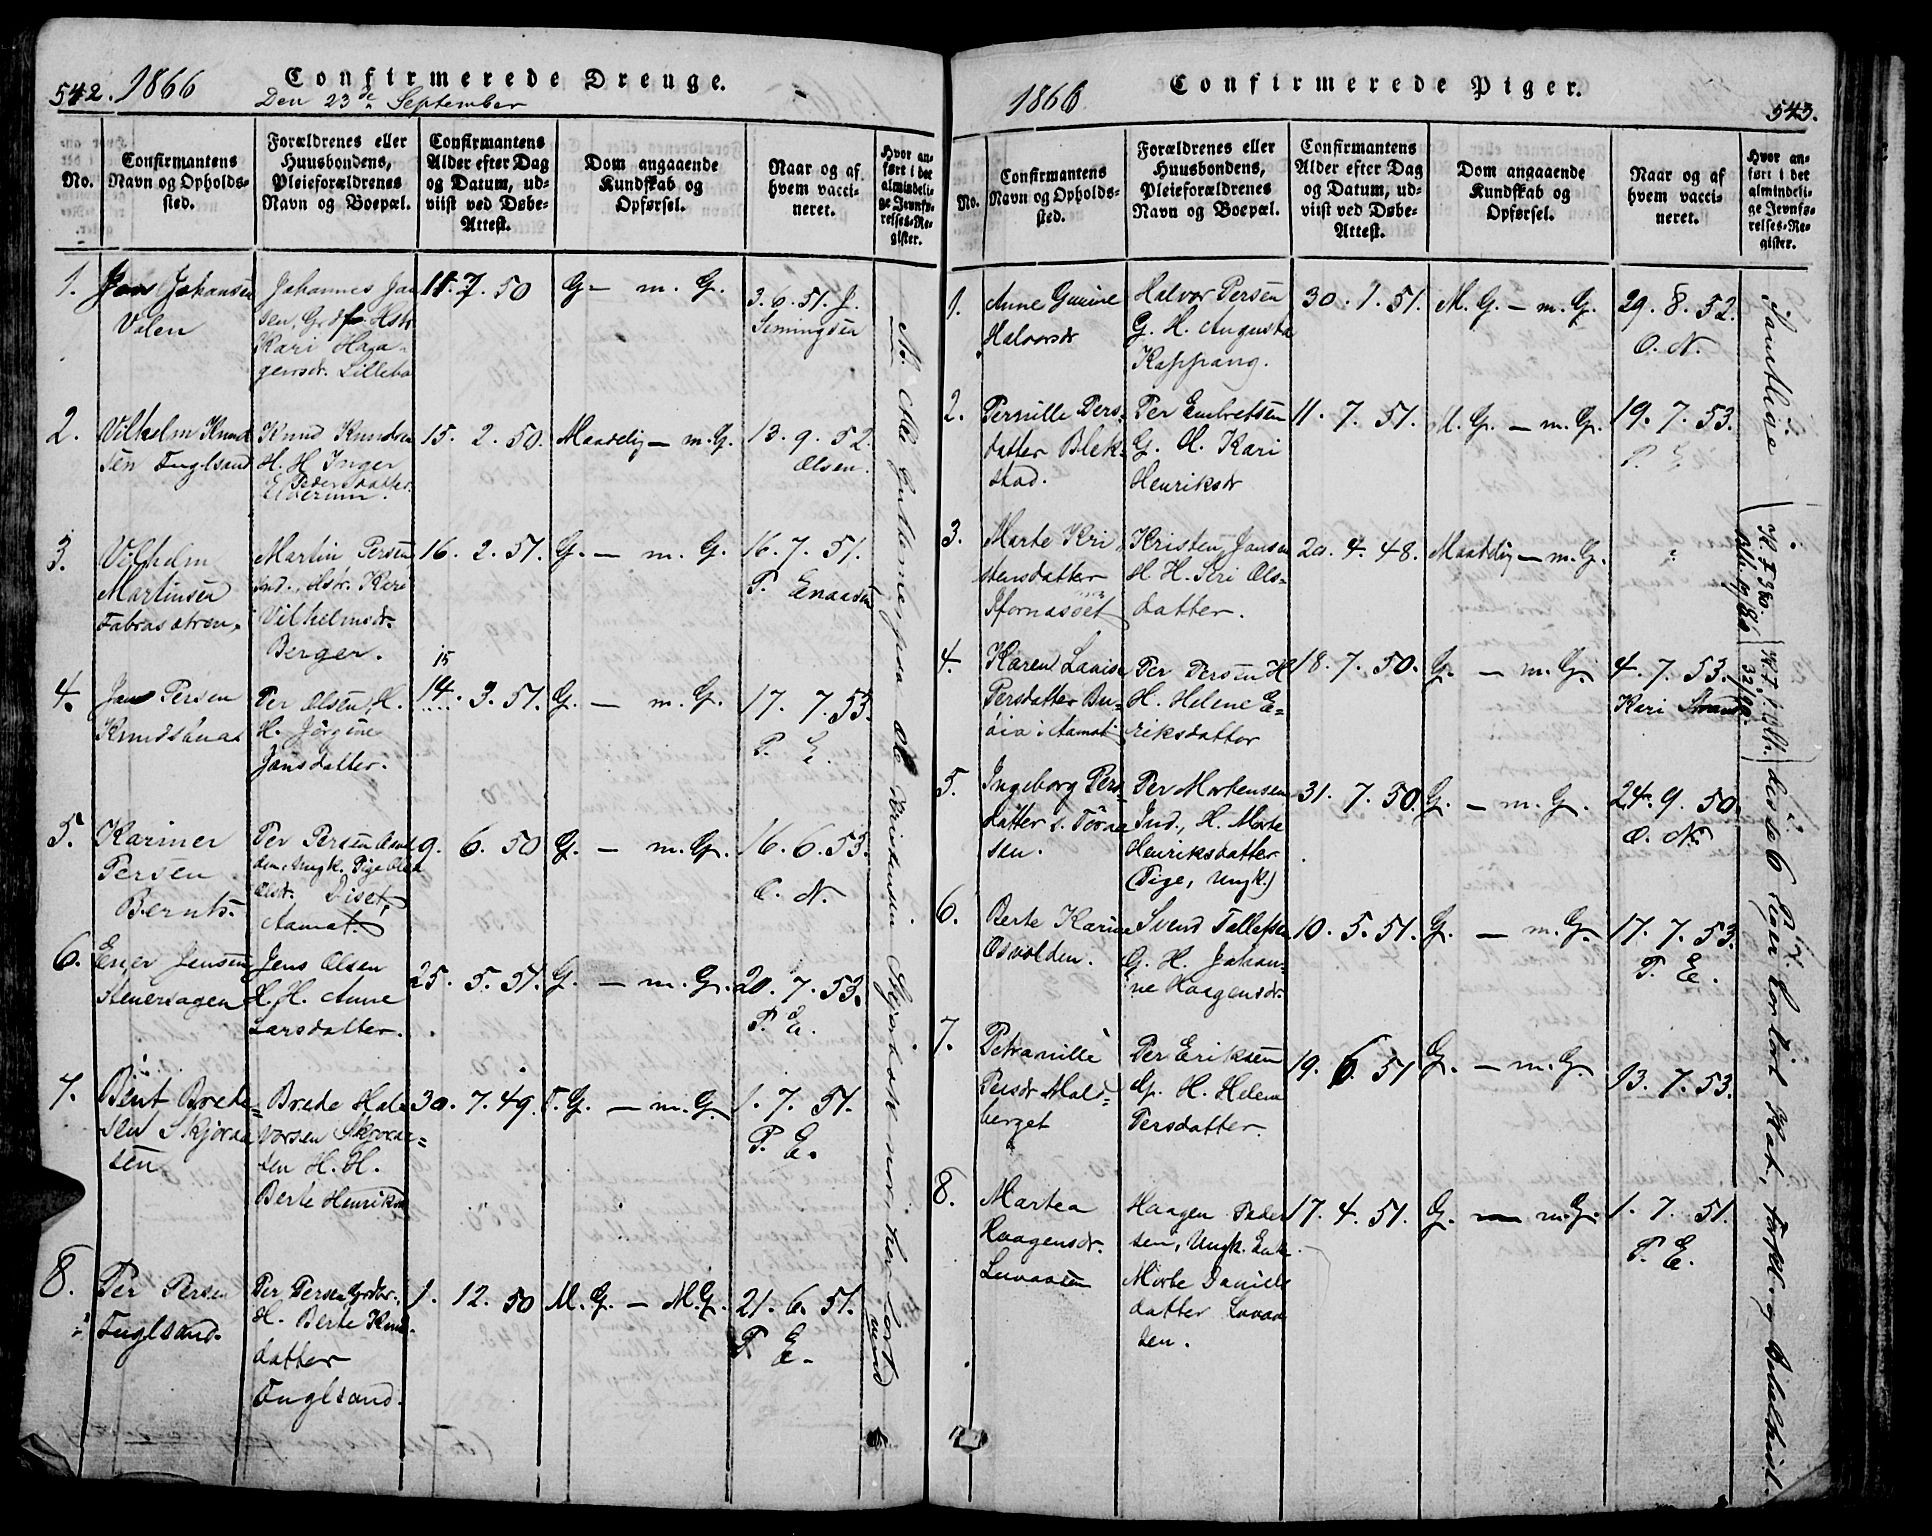 542. 1866 Confirmerede Drenge.
Den 23de September
No.
Confirmantens
Navn og Opholds-
sted.
Forældrenes eller
Huusbondens,
Pleieforældrenes
Navn og Boepæl.
Confirmantens
Alder efter Dag
og Datum, ud-
viist ved Døbe-
Attest.
Dom angaaende
Kundskab og
Opførsel.
Naar og af
hvem vacci-
neret.
Hvor an-
ført i det
almindeli-
ge Jevnfø-
relses-Re-
gister.
1. Jans Johansen
Volen
Johannes Jan
sen, Hstr
Kari Haa-
gensdr. Lillebo
11. 7. 50
G - m. G.
3. 6. 51. J.
Semingsen
2. Vilhelm Knud
sen Fuglsand
Knud Knudsen
H. H. Inger
Pedersdatter
Elverum.
15. 2. 50.
Maadelig - m. G.
13. 9. 52.
Olsen.
3. Vilhelm
Martinsen
Fabrosætren.
Martin Persen
Ind., Hstr. Kari
Vilhelmsdr.
Berger.
16. 2. 51.
G. - m. G.
16. 7. 51.
P. Enaasen
4. Jan Persen
Knudshaas
Per Olsen H.
H. Jørgine
Jansdatter.
15
14. 3. 51.
G. - m. G.
17. 7. 53.
P. E.
5. Kariner
Persen
Bernts.
Per Persen
Ungk. Pige
Olsdr. Diset,
Aamot.
9. 6. 50
G. - m. G.
16. 6. 53.
O. N.
6. Ener Jensen
Stenersagen
Jens Olsen
H. H. Anne
Larsdatter.
25. 5. 51.
G. - m. G.
20. 7. 53.
P. E.
7. Bent Brede-
sen Skjøraa
sen
Brede Hal-
vorsen Skjøraa-
sen H. H.
Berte Henriksd
30. 7. 49.
T. G. - m. G.
1. 7. 51.
P. E.
8. Per Persen
Fuglsand.
Per Persen Grdbr.
H. Berte Knu
datter
Fuglsand.
1. 12. 50
M. G. - M. G.
21. 6. 51.
P. E.
N. Alle Gutterne paa Ole Kristensen nør her bort
1866 Confirmerede Piger. 543.
No.
Confirmantens
Navn og Opholds-
sted.
Forældrenes eller
Huusbondens,
Pleieforældrenes
Navn og Boepæl.
Confirmantens
Alder efter Dag
og Datum, ud-
viist ved Døbe-
Attest.
Dom angaaende
Kundskab og
Opførsel.
Naar og af
hvem vacci-
neret.
Hvor an-
ført i det
almindeli-
ge Jevnfø-
relses-Re-
gister.
1. Anne Gunine
Halvorsdr
Halvor Persen
G. H. Augusta
Kappang.
30. 1. 51.
M. G. - m. G.
29. 8. 52.
O. N.
2. Pernille Pers-
datter Blek-
stad.
Per Embretsen
G. H. Kari
Henriksdr
11. 7. 51.
M. G. - m. G.
19. 7. 53.
P. E
3. Marte Kri
stensdatter
Kristen Jansen
H. H. Siri Ols-
datter.
20. 4. 48.
Maadelig - m. G.
4. Karen Lovise
Persdatter Bu-
øia i Aamot
Per Persen H
H. Helene E-
riksdatter
18. 7. 50.
G. - m. G.
4. 7. 53.
Kari Strand
5. Ingeborg Pers-
datter s. Toraa
sen.
Per Mortensen
Ind., H. Marte
Henriksdatter
(Pige, Ungk.)
31. 7. 50.
G. - m. G.
24. 9. 50.
O. N.
6. Berte Karine
Osvolden.
Svend Tollefse
G. H. Johan-
ne Haagensdr.
10. 5. 51.
G. - m. G.
17. 7. 53.
P. E.
7. Petranille
Persdr Mals-
berget
Per Eriksen
Gp. H. Helene
Persdatter.
19. 6. 51
G. - m. G.
13. 7. 53.
8. Martea
Haagensdr.
Luvaasen
Haagen Peder
sen, Ungk. Enke
Marte Daniels
datter Luvaa
sen.
17. 4. 51.
G. - m. G.
1. 7. 51.
P. E.
Samtlige
disse 6 Par